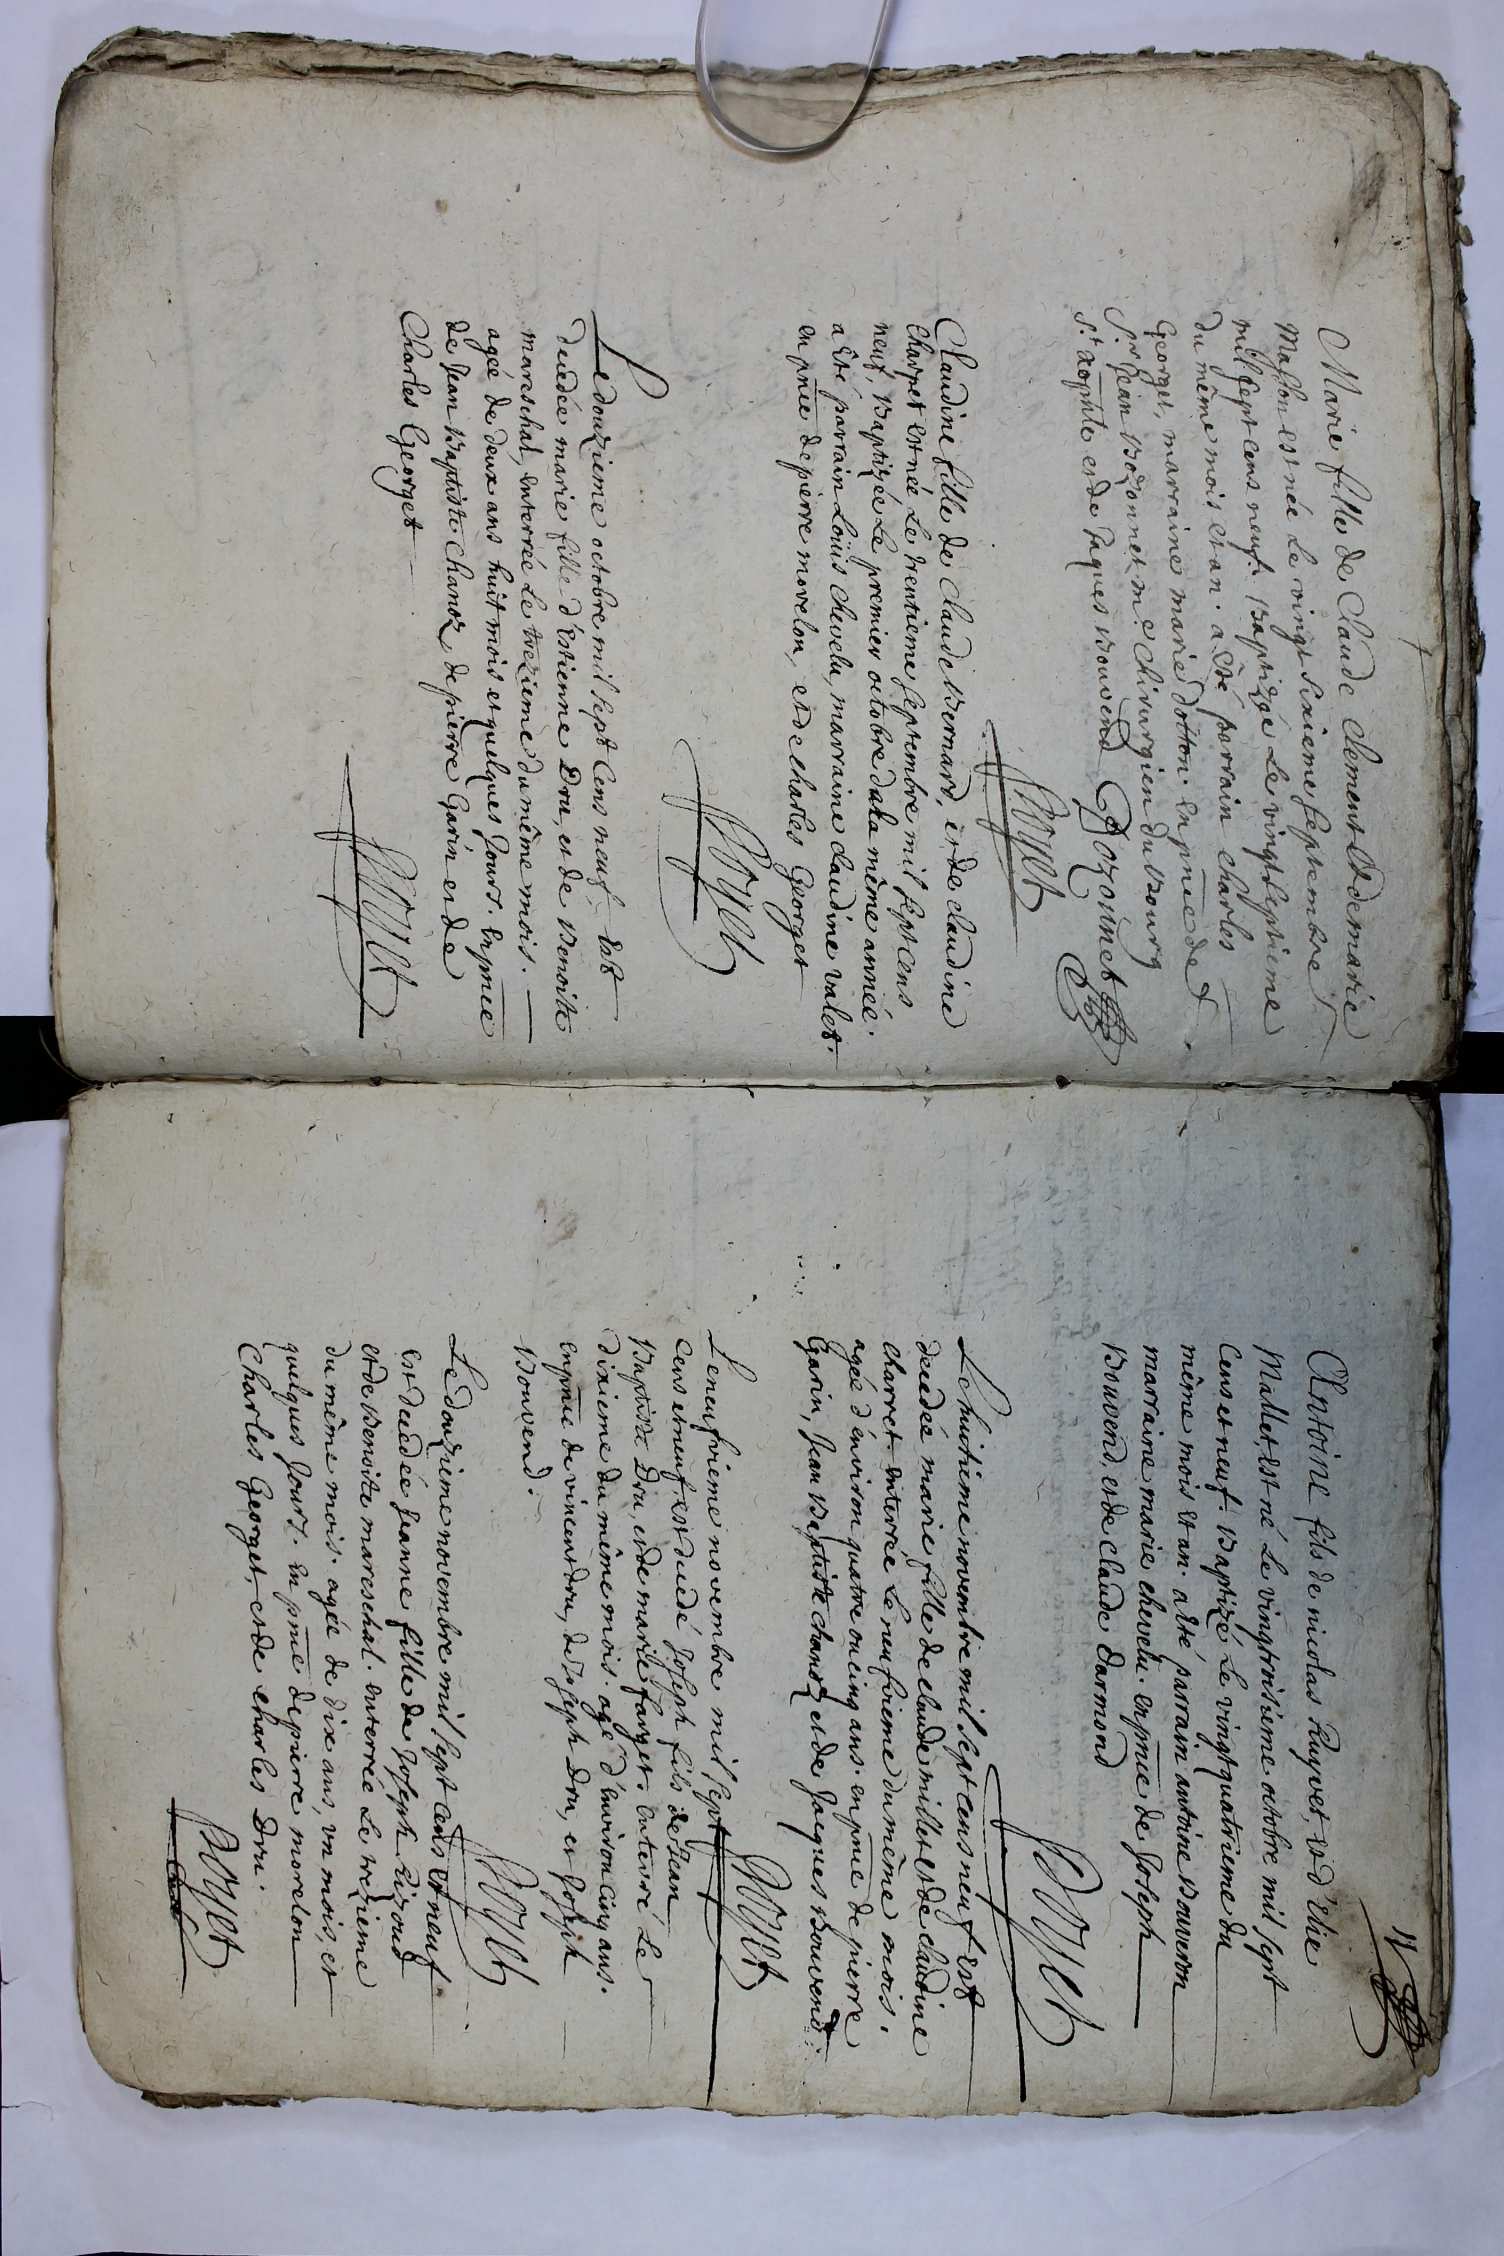 Marie fille de Claude Clement et de marie
Masson est née Le vingt sixieme septembre
mil sept cens neuf. Baptizée Le vingt septieme
du même mois et an. a été parrain charles
Georget, marraine marie dotton. en pnce de
Sr Jean Bozonnet me chirurgien du Bourg
St xophle et de Jaques Bouvend Bozonnet
Poyet
Claudine fille de claude Bernard, et de claudine
Charret est née Le trentieme septembre mil sept cens
neuf, Baptizée Le premier octobre de la même année.
a été parrain Loüis chevelu, marraine claudine valet.
en pnce de pierre morelon, et de charles Georget
Poyet
Le douzieme octobre mil sept cens neuf est
decedée marie fille d'Estienne Dru, et de Benoiste
mareschal, enterrée Le trezieme du même mois.
agée de deux ans huit mois et quelques jours. en pnce
de Jean Baptiste chanoz de pierre Garin et de
Charles Georget
Poyet
11
Antoine fils de nicolas Puyet, et d'Elie
Mallet, est né Le vingt troisieme octobre mil sept
Cens et neuf. Baptizé Le vingt quatrieme du
même mois et an. a été parrain antoine Bouveron
marraine marie chevelu. en pnce de Joseph
Bouvend, et de claude Darmond
Poyet
Le huitieme novembre mil sept cens neuf est
decedée marie fille de claude millet et de claudine
Charret. enterrée Le neufvieme du même mois.
agée d'environ quatre ou cinq ans. en pnce de pierre
Garin, Jean Baptiste chanoz et de Jacques Bouvend
Poyet
Le neufvieme novembre mil sept
Cens et neuf est decedé Joseph fils de Jean
Baptiste Dru, et de marie farget. enterré Le
dixieme du même mois. agé d'environ cinq ans.
en pnce de vincent dru, de Joseph Dru, et Joseph
Bouvend.
Poyet
Le douzieme novembre mil sept cens et neuf
est decedée Jeanne fille de Joseph
et de Benoiste mareschal. enterrée Le trezieme
du même mois. agée de dix ans, un mois, et
quelques jours. en pnce de pierre morelon
Charles Georget, et de charles Dru.
Poyet
Curé